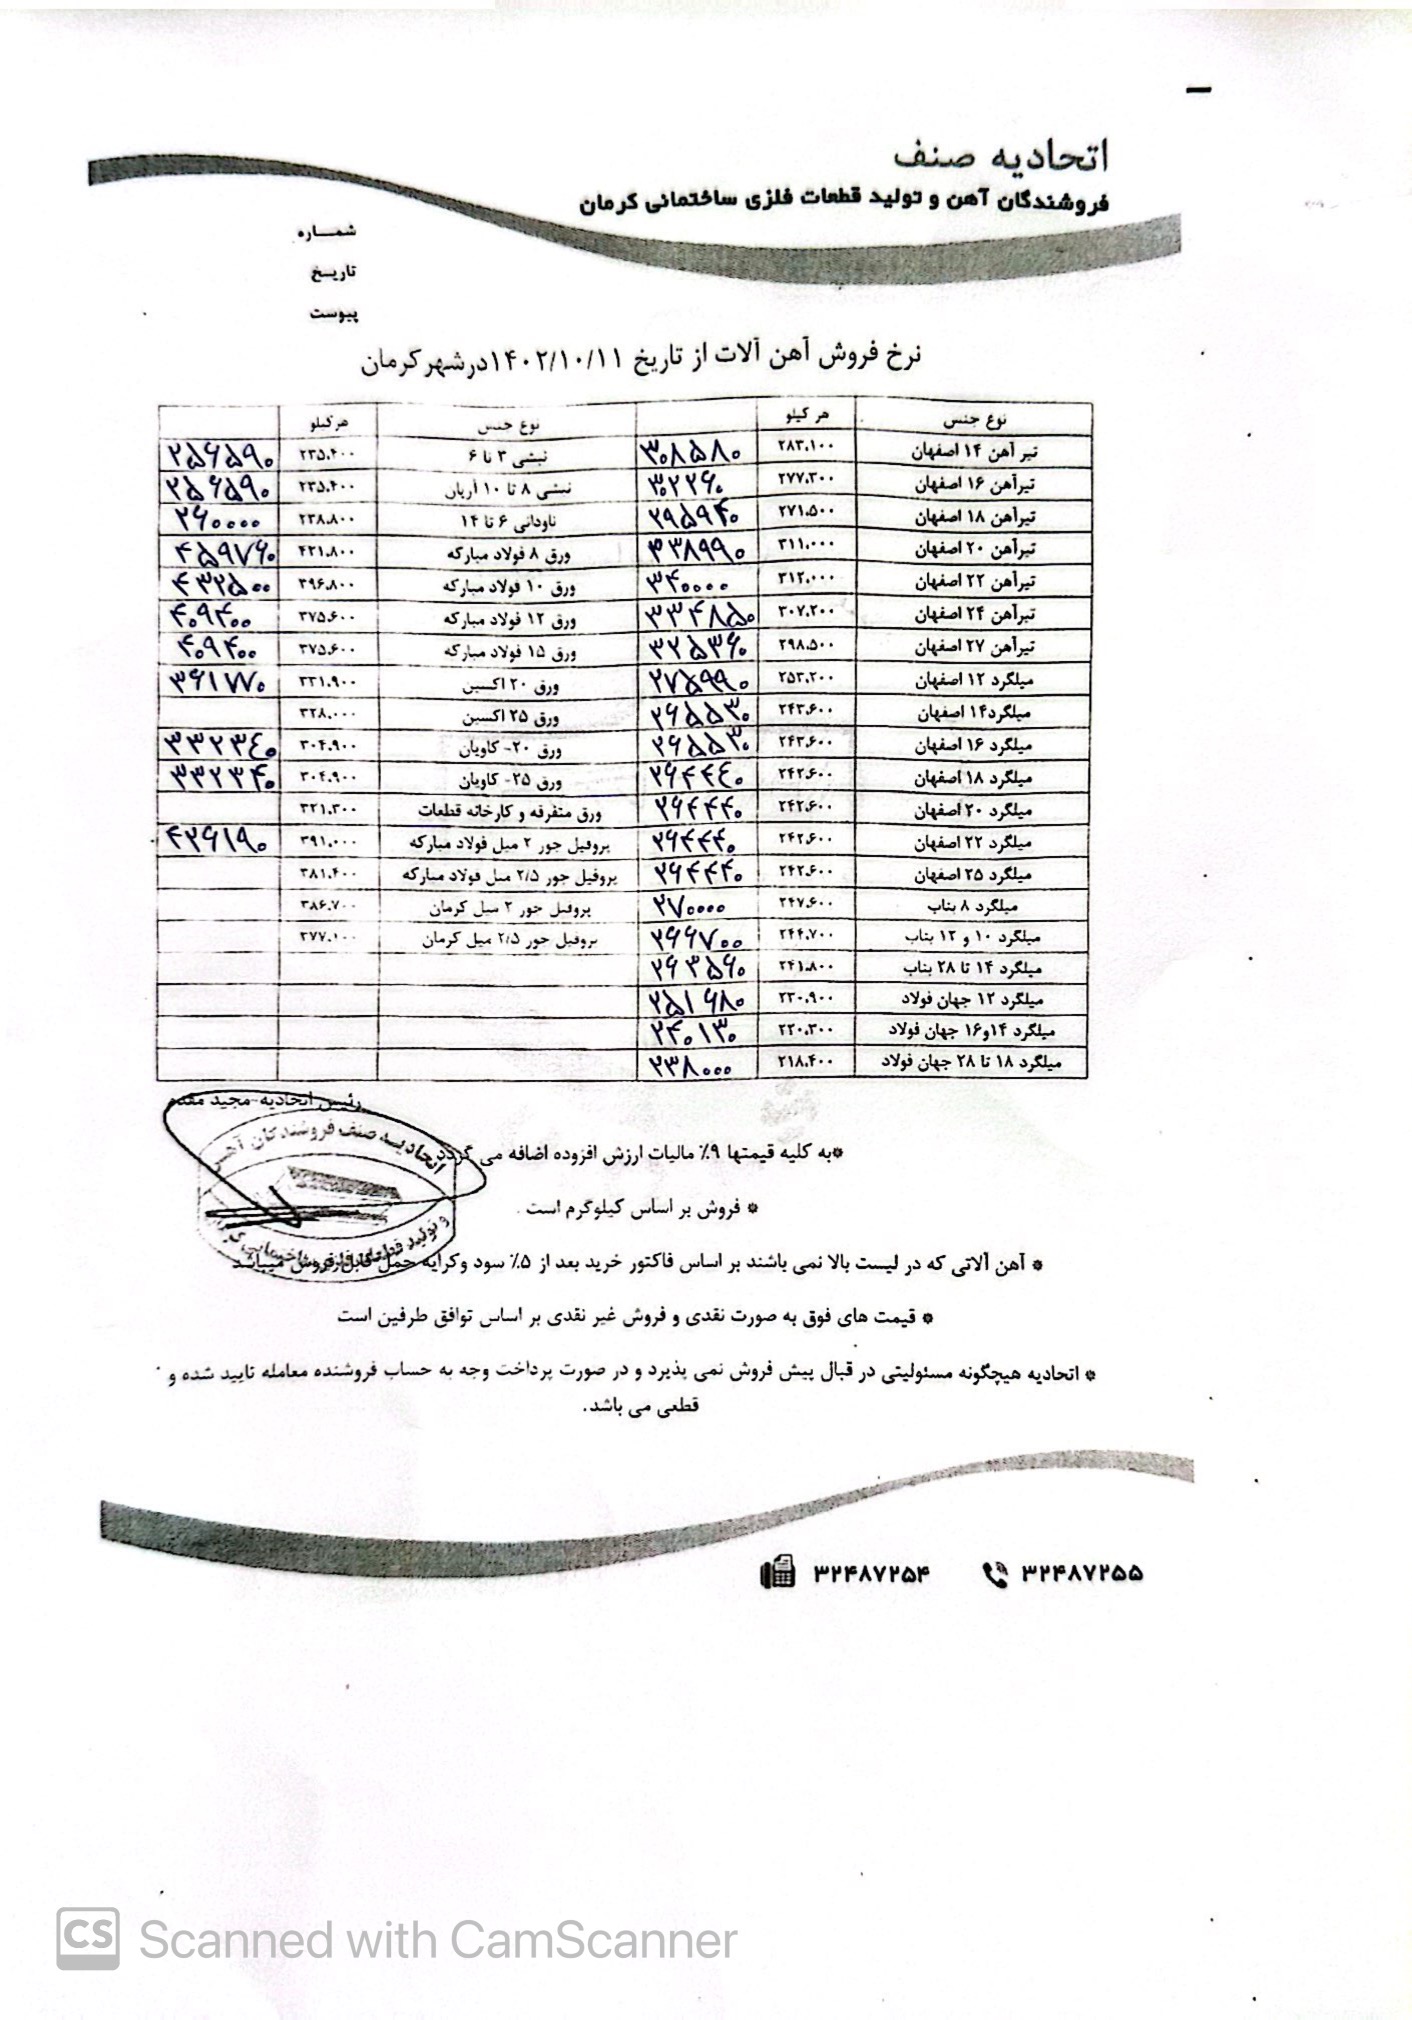 اتحادیه صنف
فروشندگان آهن و تولید قطعات فلزی ساختمانی کرمان
شماره
تاریخ
پیوست
نرخ فروش آهن آلات از تاریخ ۱۴۰۲/۱۰/۱۱ درشهرکرمان
نوع جنس هر کیلو نوع جنس هرکیلو
تیر آهن ۱۴ اصفهان ۲۸۳.۱۰۰ ۳۰۸۵۸۰ نبشی ۳ تا ۶ ۲۳۵.۴۰۰ ۲۵۶۵۹۰
تیرآهن ۱۶ اصفهان ۲۷۷.۳۰۰ ۳۰۲۲۶۰ نبشی ۸ تا ۱۰ آریان ۲۳۵.۴۰۰ ۲۵۶۵۹۰
تیرآهن ۱۸ اصفهان ۲۷۱.۵۰۰ ۲۹۵۹۴۰ ناودانی ۶ تا ۱۴ ۲۳۸.۸۰۰ ۲۶۰۰۰۰
تیرآهن ۲۰ اصفهان ۳۱۱.۰۰۰ ۳۳۸۹۹۰ ورق ۸ فولاد مبارکه ۴۲۱.۸۰۰ ۴۵۹۷۶۰
تیرآهن ۲۲ اصفهان ۳۱۲.۰۰۰ ۳۴۰۰۰۰ ورق ۱۰ فولاد مبارکه ۳۹۶.۸۰۰ ۴۳۲۵۰۰
تیرآهن ۲۴ اصفهان ۳۰۷.۲۰۰ ۳۳۴۸۵۰ ورق ۱۲ فولاد مبارکه ۳۷۵.۶۰۰ ۴۰۹۴۰۰
تیرآهن ۲۷ اصفهان ۲۹۸.۵۰۰ ۳۲۵۳۶۰ ورق ۱۵ فولاد مبارکه ۳۷۵.۶۰۰ ۴۰۹۴۰۰
میلگرد ۱۲ اصفهان ۲۵۳.۲۰۰ ۲۷۵۹۹۰ ورق ۲۰ اکسین ۳۳۱.۹۰۰ ۳۶۱۷۷۰
میلگرد۱۴ اصفهان ۲۴۳.۶۰۰ ۲۶۵۵۳۰ ورق ۲۵ اکسین ۳۲۸.۰۰۰
میلگرد ۱۶ اصفهان ۲۴۳.۶۰۰ ۲۶۵۵۳۰ ورق ۲۰- کاویان ۳۰۴.۹۰۰ ۳۳۲۳۴۰
میلگرد ۱۸ اصفهان ۲۴۲.۶۰۰ ۲۶۴۴۴۰ ورق ۲۵- کاویان ۳۰۴.۹۰۰ ۳۳۲۳۴۰
میلگرد ۲۰ اصفهان ۲۴۲.۶۰۰ ۲۶۴۴۴۰ ورق متفرقه و کارخانه قطعات ۳۲۱.۳۰۰
میلگرد ۲۲ اصفهان ۲۴۲.۶۰۰ ۲۶۴۴۴۰ پروفیل جور ۲ میل فولاد مبارکه ۳۹۱.۰۰۰ ۴۲۶۱۹۰
میلگرد ۲۵ اصفهان ۲۴۲.۶۰۰ ۲۶۴۴۴۰ پروفیل جور ۲/۵ میل فولاد مبارکه ۳۸۱.۴۰۰
میلگرد ۸ بناب ۲۴۷.۶۰۰ ۲۷۰۰۰۰ پروفیل جور ۲ میل کرمان ۳۸۶.۷۰۰
میلگرد ۱۰ و ۱۲ بناب ۲۴۴.۷۰۰ ۲۶۶۷۰۰ پروفیل جور ۲/۵ میل کرمان ۳۷۷.۱۰۰
میلگرد ۱۴ تا ۲۸ بناب ۲۴۱.۸۰۰ ۲۶۳۵۶۰
میلگرد ۱۲ جهان فولاد ۲۳۰.۹۰۰ ۲۵۱۶۸۰
میلگرد ۱۴و۱۶ جهان فولاد ۲۲۰.۳۰۰ ۲۴۰۱۳۰
میلگرد ۱۸ تا ۲۸ جهان فولاد ۲۱۸.۴۰۰ ۲۳۸۰۰۰
رئیس اتحادیه-مجید مقدم
اتحادیه صنف فروشندگان آهن
و تولید قطعات فلزی ساختمانی
*به کلیه قیمتها ۹٪ مالیات ارزش افزوده اضافه می گردد
* فروش بر اساس کیلوگرم است .
* آهن آلاتی که در لیست بالا نمی باشند بر اساس فاکتور خرید بعد از ۵٪ سود وکرایه حمل قابل فروش میباشد
* قیمت های فوق به صورت نقدی و فروش غیر نقدی بر اساس توافق طرفین است
* اتحادیه هیچگونه مسئولیتی در قبال پیش فروش نمی پذیرد و در صورت پرداخت وجه به حساب فروشنده معامله تایید شده و
قطعی می باشد.
۳۲۴۸۷۲۵۵ ۳۲۴۸۷۲۵۴
CS Scanned with CamScanner